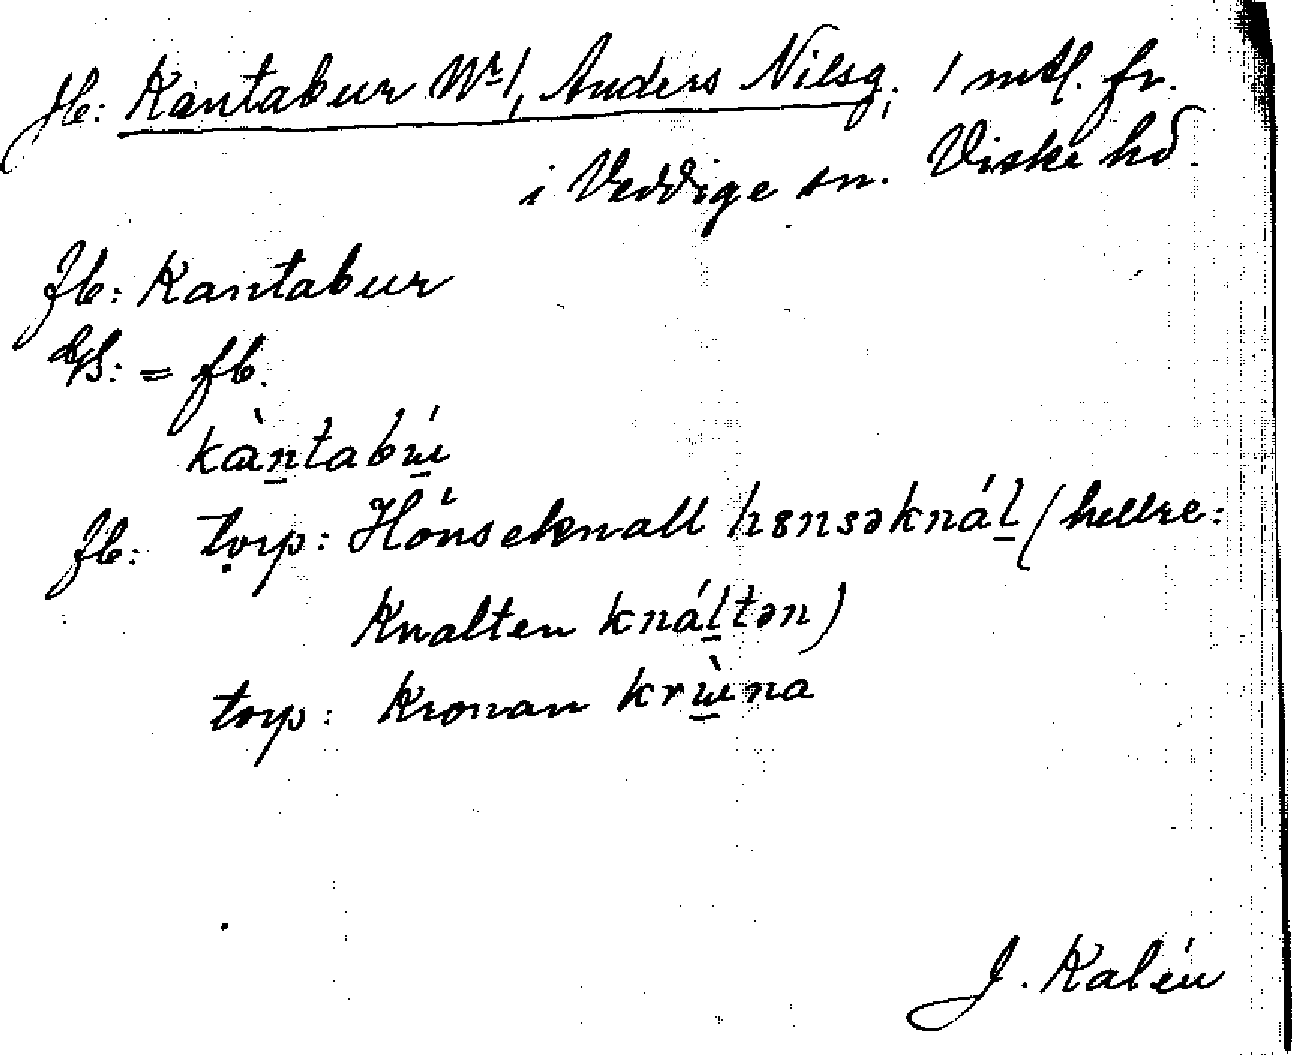 fb: Kantabur Nr 1, Anders Nilsg, 1 mtl. fr.
i Veddige sn. Viske hd.
fb: Kantabur
= fb.
kàn̠tabɯ̠́
fb: torp: Hönseknall hɵnsəknál̠ (hellre:
Knalten knál̠tən)
torp: Kronan krɯ̠̀na
J. Kalén